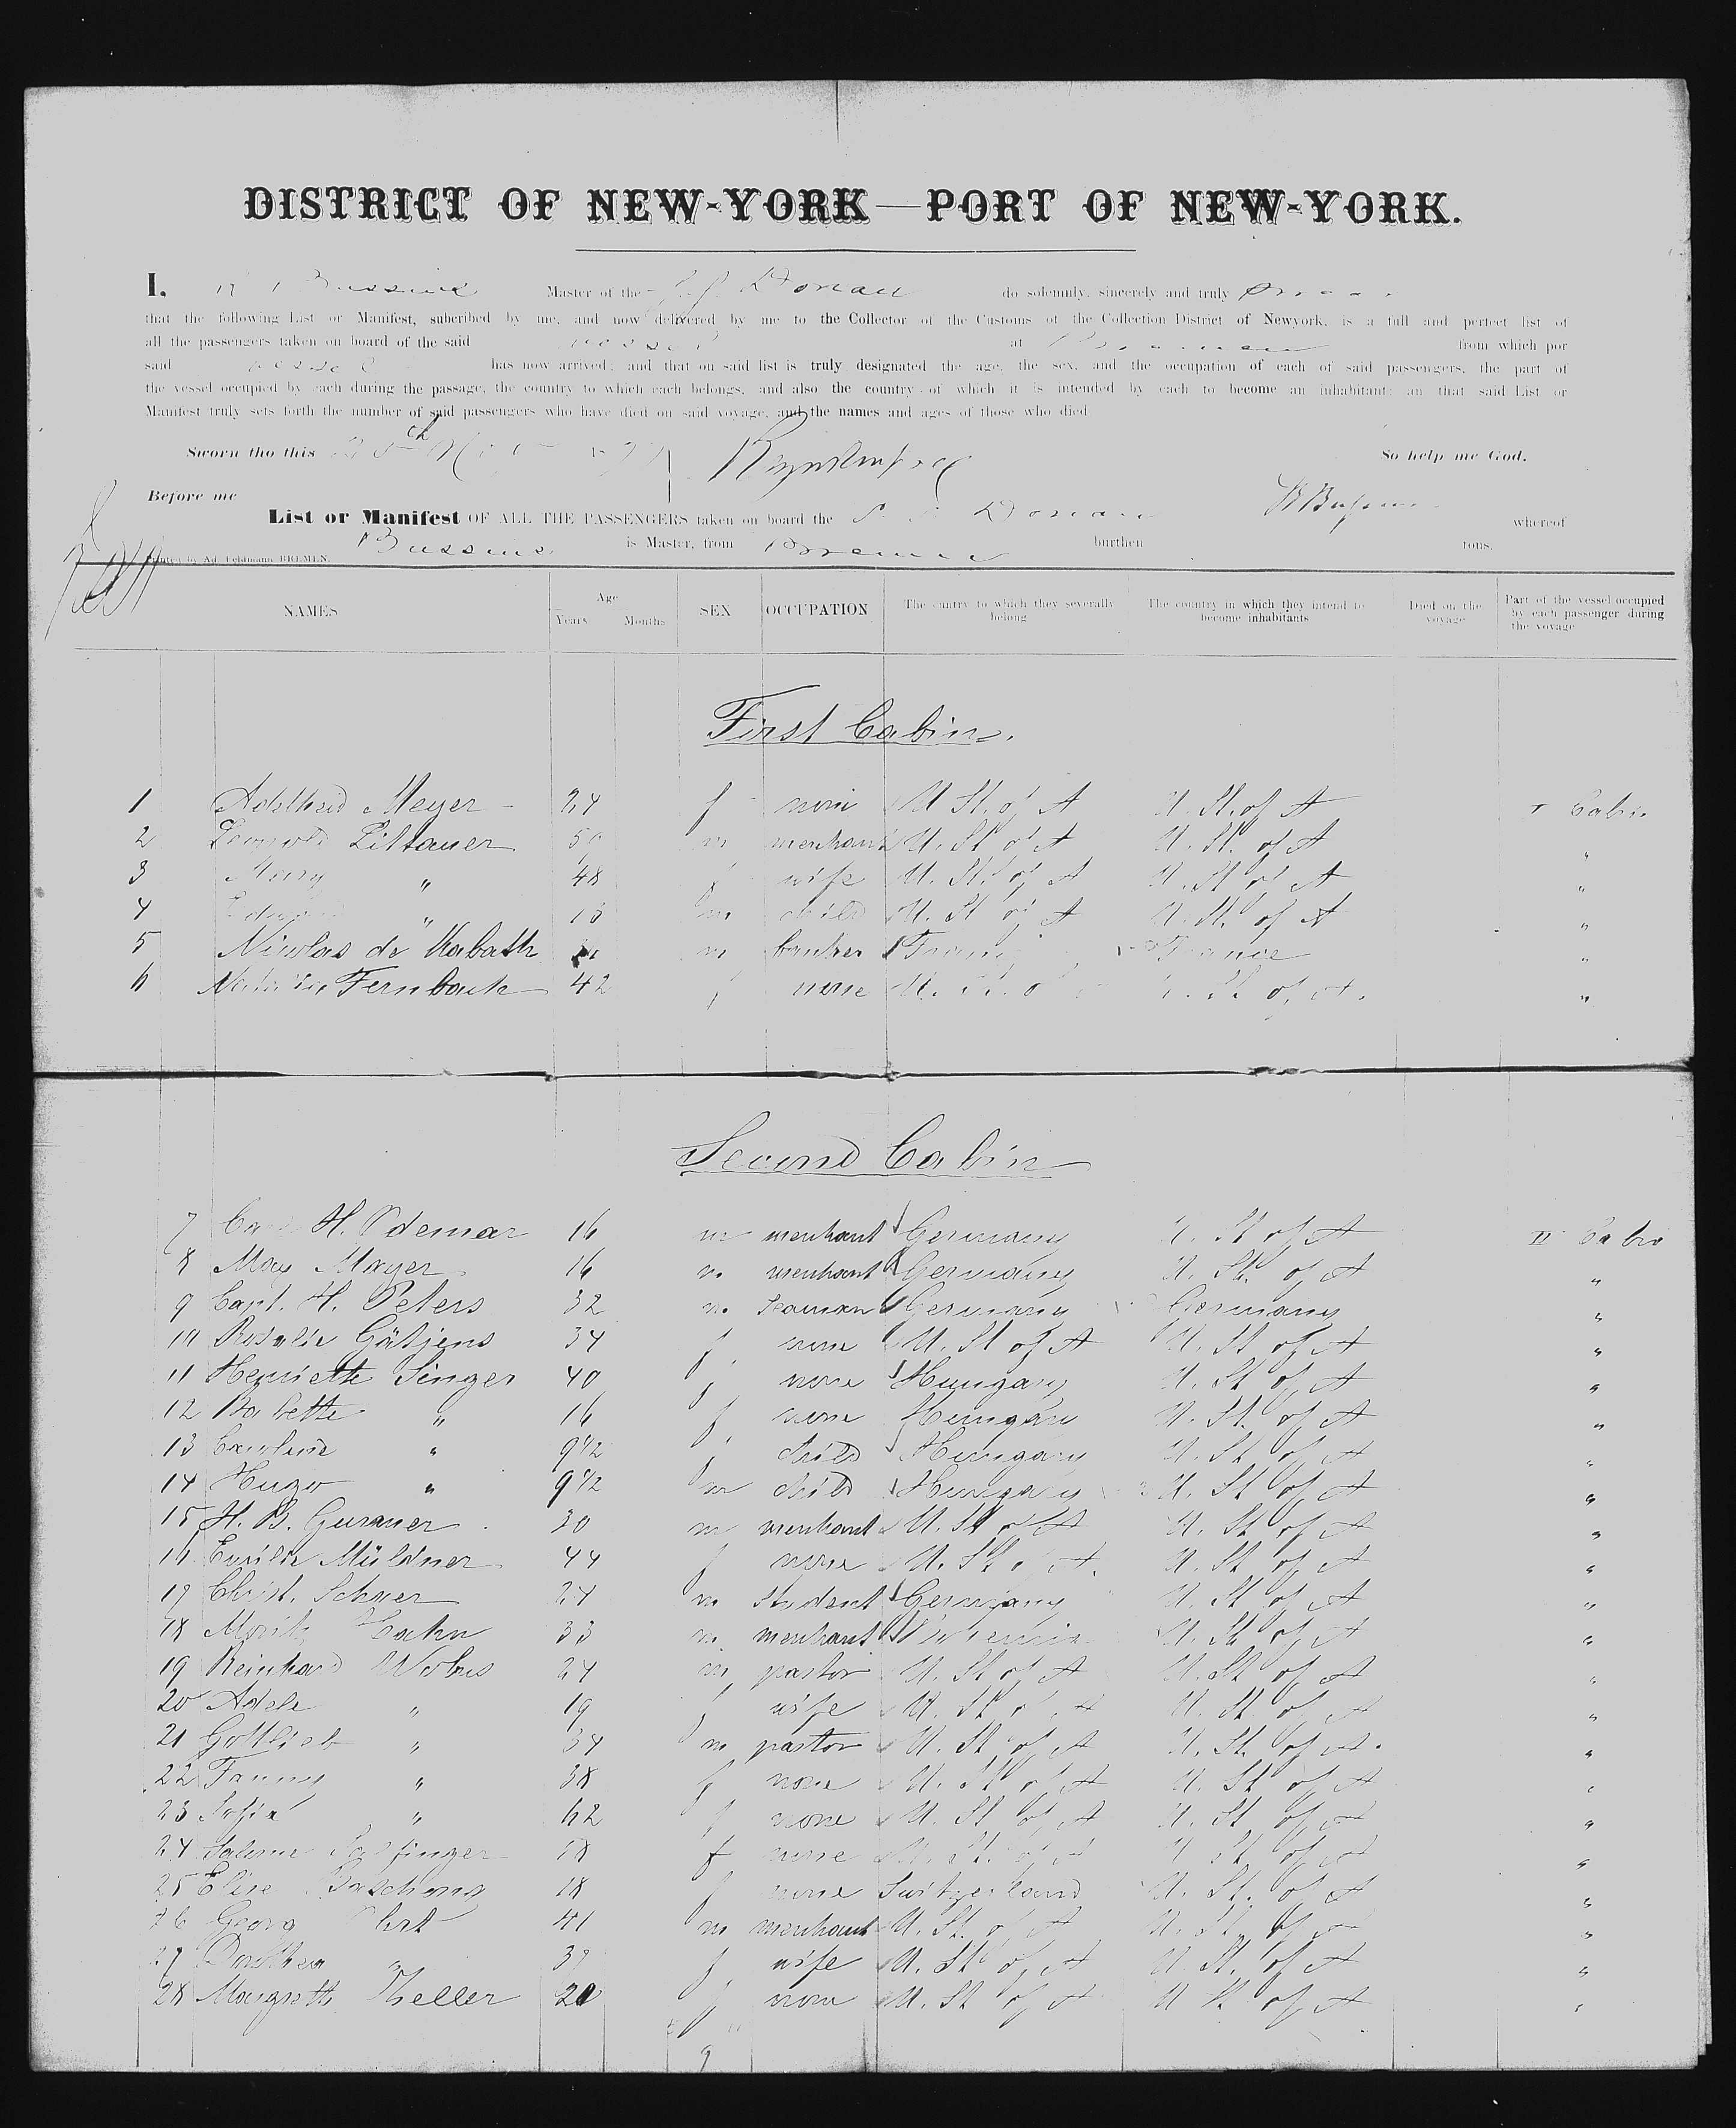 DISTRICT OF NEW-YORK—PORT OF NEW-YORK.
I, Bussius Master of the Donau do solemnly, sincerely and truly
that the following List or Manifest, subcribed by me, and now delivered by me to the Collector of the Customs of the Collection District of Newyork, is a full and perfect list of
all the passengers taken on board of the said vessel at Bremen from which por
said vessel has now arrived; and that on said list is truly designated the age, the sex, and the occupation of each of said passengers, the part of
the vessel occupied by each during the passage, the country to which each belongs, and also the country of which it is intended by each to become an inhabitant; an that said List or
Manifest truly sets forth the number of said passengers who have died on said voyage, and the names and ages of those who died
Sworn tho this 25th So help me God.
Before me
List or Manifest OF ALL THE PASSENGERS taken on board the S. S. Donau whereof
Bussius is Master, from Bremen burthen tons.
Printed by Ad. Feldmann BREMEN.
NAMES Age Years Months SEX OCCUPATION The cuntry to which they severally belong The country in which they intend to become inhabitants Died on the voyage Part of the vessel occupied by each passenger during the voyage
First Cabin.
1 Adelheid Meyer 24 f none U. St. of A U. St. of A I Cabin
2 Leopold Littauer 50 m merchant U. St of A U. St. of A "
3 Mary " 48 f wife U. St. of A U. St of A "
4 " m child U. St of A U. St. of A "
5 Nicolas de Kabath m banker France France "
6 Fernbach 42 f none U. St. of U. St. of A. "
Second Cabin
7 H. Odemar 16 m merchant Germany U. St of A II Cabin
8 Max Mayer 16 m merchant Germany U. St. of A "
9 Capt. H. Peters 32 m Seaman Germany Germany "
10 Rosalie Gätjens 34 f none U. St of A U. St of A "
11 Henriette Singer 40 f none Hungary U. St of A "
12 Babette " 16 f none Hungary U. St. of A "
13 Caroline " 9 1/2 f child Hungary U. St of A "
14 Hugo " 9 1/2 m child Hungary U. St of A "
15 H. B. 30 m merchant U. St of A U. St of A "
16 Emilie Müldner 44 f none U. St of A. U. St of A "
17 Christ. Scheer 24 m student Germany U. St of A "
18 Moritz Hahn 33 m merchant U. St of A "
19 Reinhard Wobus 24 m pastor U. St of A U. St of A "
20 Adele " 19 f wife U. St of A U. St of A "
21 Gottlieb " 34 m pastor U. St of A U. St. of A. "
22 Fanny " 38 f none U. St of A U. St of A "
23 Sofia " 62 f none U. St of A U. St of A "
24 f none U. St. of A U St of A "
25 Elise 18 f none Switzerland U. St. of A "
26 Georg 41 m merchant U. St. of A U. St. of A "
27 Dorothea " f wife U. St of A U St. of A "
28 Margreth Theller 20 f none U. St of A U St of A "